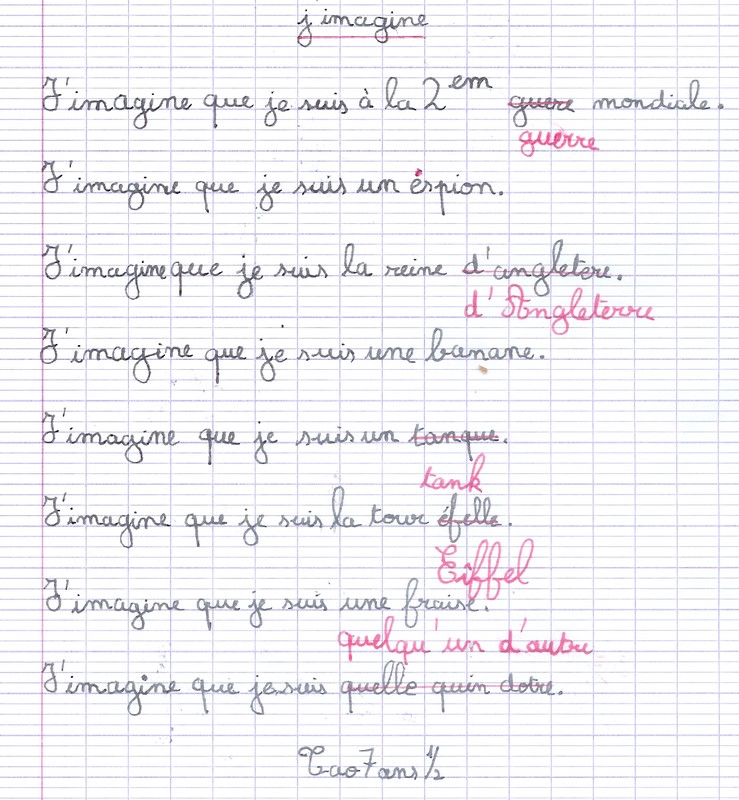 j'imagine
J'imagine que je suis à la 2em guere mondiale.
guerre
J'imagine que je suis un éspion.
J'imagine que je suis la reine d'angletere.
d'Angleterre
J'imagine que je suis une banane.
J'imagine que je suis un tanque.
tank
J'imagine que je suis la tour éfelle.
Eiffel
J'imagine que je suis une fraise.
quelqu'un d'autre
J'imagine que je suis quelle quin dotre.
Tao 7 ans 1/2